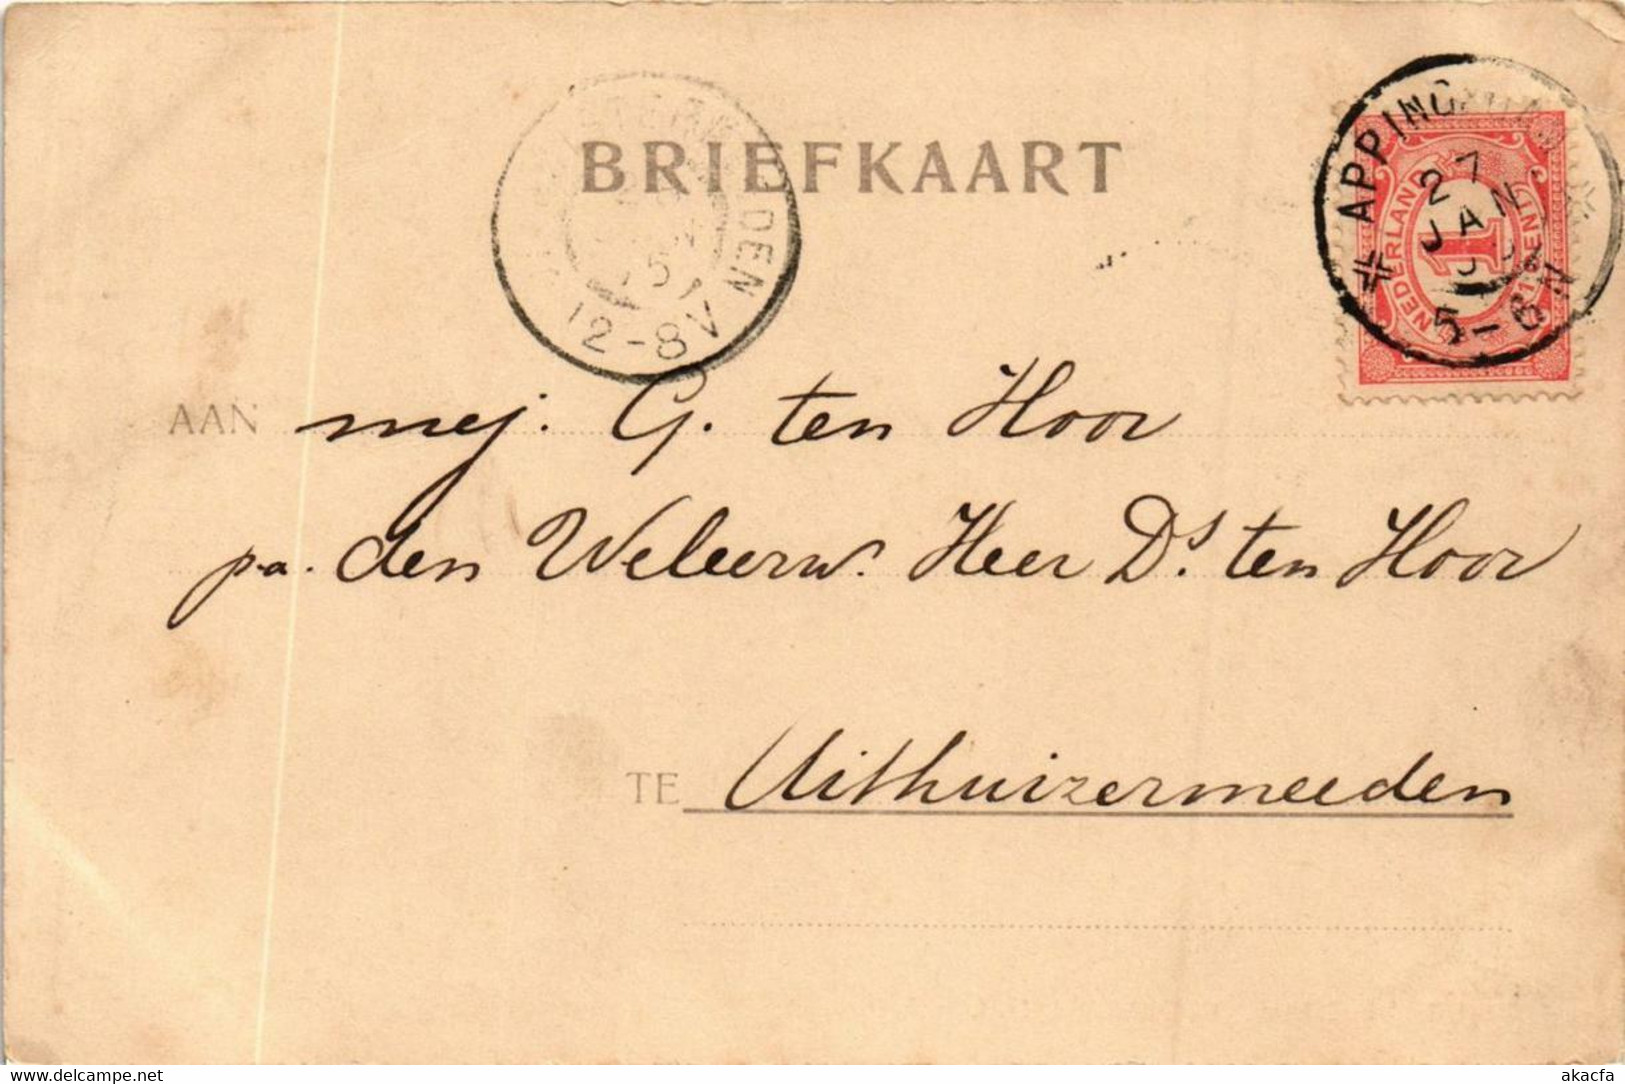 BRIEFKAART
27
JAN
5-6N
NEDERLAND
1
12-8V
AAN mej. G. ten Hoor
p.a. den Weleerw. Heer Ds. ten Hoor
TE Uithuizermeeden
delcampe.net
akacfa